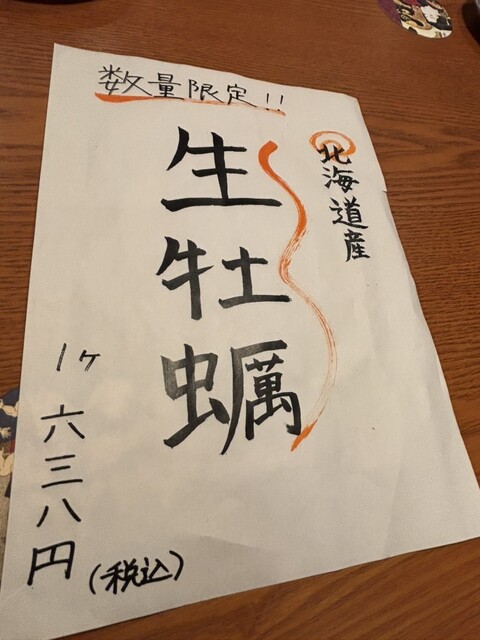 数量限定!!
北海道産
生牡蠣
1ヶ 六三八円
(税込)